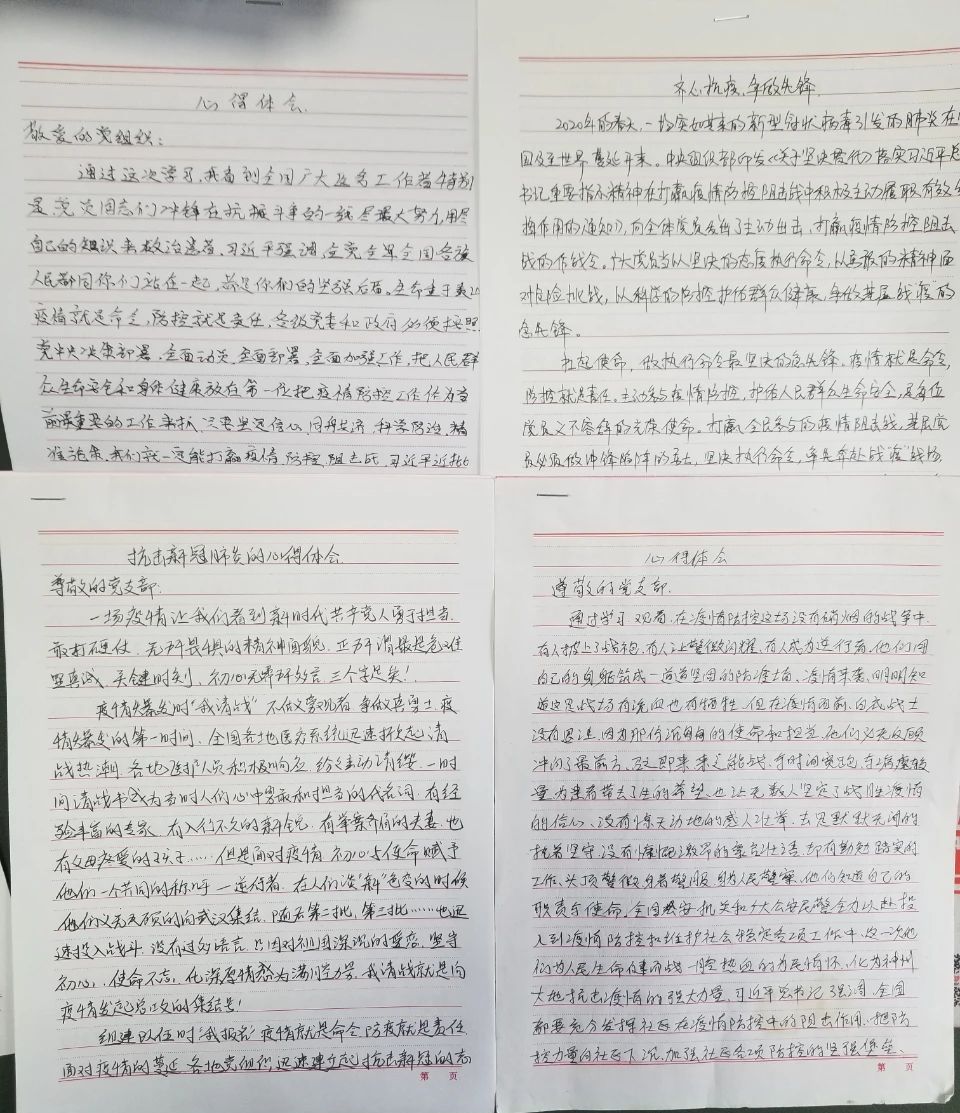 心得体会
敬爱的党组织：
通过这次学习，我看到全国广大医务工作者特别
是党员同志们冲锋在抗
斗争的一线尽最大努力，用尽
自己的知识来救治患者，习近平强调，全党全军全国各族
人民都同你们站在一起，都是你们的坚强后盾。生命重于泰山
疫情就是命令，防控就是责任，各级党委和政府必须按照
党中央决策部署，全面动员，全面部署，全面加强工作，把人民群
众生命安全和身体健康放在第一位把疫情防控工作作为当
前最重要的工作来抓，只要坚定信心、同舟共济、科学防治、精
准施策，我们就一定能打赢疫情防控阻击战，习近平
齐心抗疫，争做先锋
2020年的春天，一场突如其来的新型冠状病毒引发的肺炎在
国乃至世界蔓延开来。中央组织部印发《关于
贯彻落实习近平总
书记重要指示精神在打赢疫情防控阻击战中积极主动履职有效
挥作用的通知》，向全体党员
了主动出击、打赢疫情防控阻击
战的作战令。广大党员当以坚决的态度执行命令，以
的精神面
对
挑战，以科学的防控护佑群众健康，争做基层战“疫”的
急先锋。
担起使命，做执行命令最坚决的急先锋。疫情就是命令，
防控就是责任。主动参与疫情防控，护佑人民群众生命安全，是每位
党员义不容辞的光荣使命。打赢全民参与的疫情阻击战，基层党
员必须做冲锋陷阵的勇士，坚决执行命令，率先奔赴战“疫”战场
抗击新冠肺炎的心得体会
尊敬的党支部：
一场疫情让我们看到新时代共产党人勇于担当、
敢打硬仗、无所畏惧的精神面貌。正所谓最是危难
显真诚，关键时刻，初心无需所多言，三个字足矣！
疫情爆发时“我请战”不做旁观者，争做真勇士。疫
情爆发的第一时间，全国各地医务系统迅速掀起请
战热潮，各地逆队人员积极响应，纷纷主动请缨。一时
间请战书成为当时人们心中勇敢和担当的代名词，有经
验丰富的专家，有入行不久的新兵，有举案齐眉的夫妻，也
有父母疼爱的孩子……但是面对疫情，初心与使命赋予
他们一个共同的称呼—逆行者。在人们谈“新”色变的时候
他们义无反顾的向武汉集结，随后第二批，第三批……也迅
速投入战斗，没有过多语言，只因对祖国深沉的爱恋，坚守
初心，使命不忘，化深厚情感为满腔力量，我请战就是向
疫情发起总攻的集结号！
组建队伍时“我报名”疫情就是命令，防疫就是责任
面对疫情的蔓延，各地党组织迅速建立起抗击新冠的
第 页
心得体会
尊敬的党支部：
通过学习观看，在疫情防控这场没有硝烟的战争中，
有人披上了战袍，有人让警徽闪耀，有人成为逆行者，他们用
自己的身躯筑成一道道坚固的防疫墙，疫情来袭，明明知
道这是战场有流血也有牺牲，但在疫情面前，白衣战士
没有退让，因为那份沉甸甸的使命和担当，他们义无反顾
冲向了最前方，
即来，来之能战，与时间赛跑，与病魔较
量，为患者带去了生的希望，也让无数人坚定了战胜疫情
的信心。没有惊天动地的感人壮举，去是默默无闻的
执着坚守，没有慷慨激昂的豪言壮语，却有勤勉踏实的
工作，头顶警徽身着警服，身为人民警察，他们知道自己的
职责与使命，全国公安机关和广大公安民警全力以赴投
入到疫情防控和维护社会稳定各项工作中，这一次他
们为人民生命健康而战，一腔热血的为民情怀，化为神州
大地抗击疫情的强大力量。习近平总书记强调，全国
都要充分发挥社区在疫情防控中的阻击作用，把防
控力量向社区下沉，加强社区各项防控的坚强堡垒、
第 页